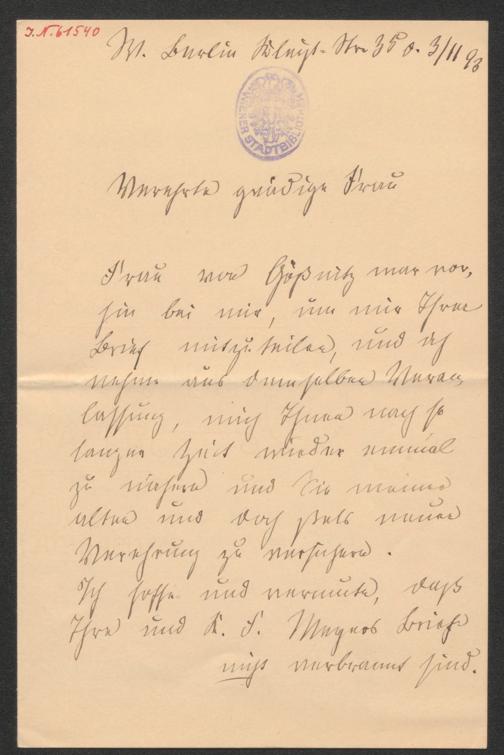 I.N. 61540
W. Berlin Kleist-Str 35 d. 3/11 93
WIENER STADTBIBLIOTHEK
Verehrte gnädige Frau
Frau von Gößnitz war vor,
hin bei mir, um mir Ihren
Brief mitzuteilen, und ich
nehme aus demselben Veran,
lassung, mich Ihnen nach so
langer Zeit wieder einmal
zu nähern und Sie meiner
alten und doch stets neuen
Verehrung zu versichern.
Ich hoffe und vermute, daß
Ihre und K. F. Meyers Briefe
nicht verbrannt sind.